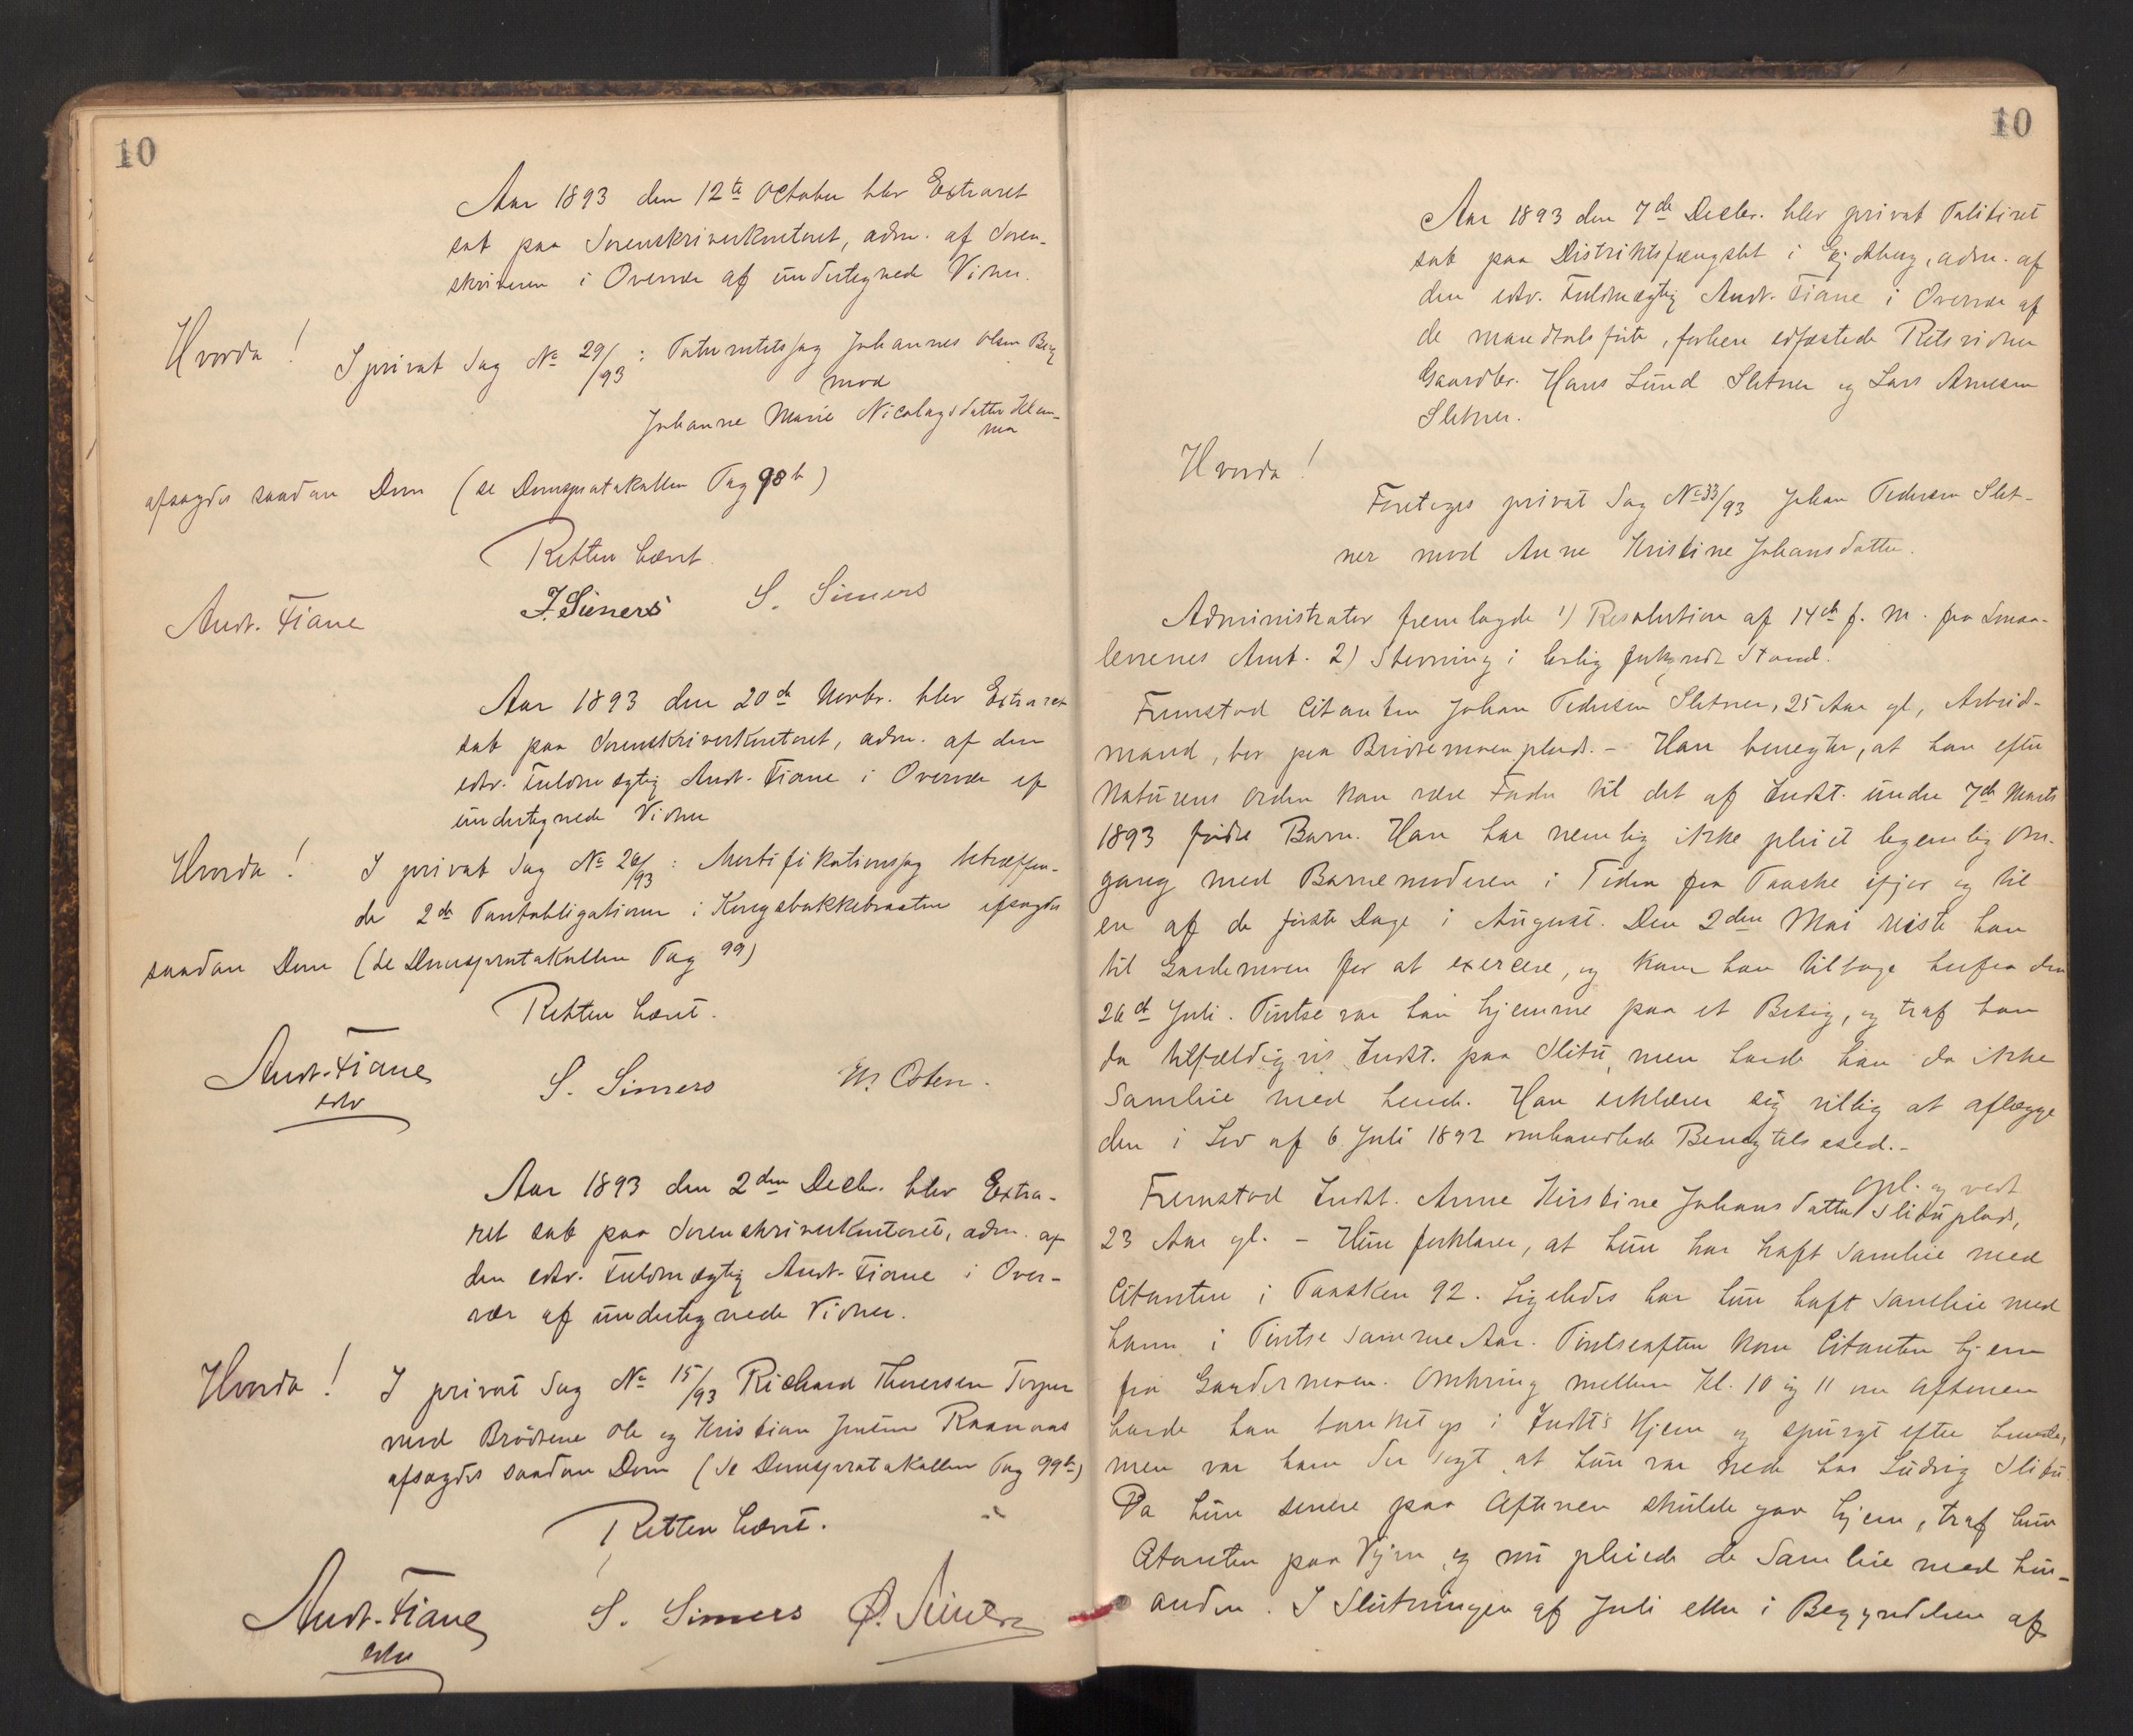 10
Aar 1893 den 12te October blev Extraret
sat paa Sorenskriverkontoret, adm. af Soren-
skriveren i Overvær af undertegnede Vidner.
Hvorda!
I privat Sag No 29/93: Paternitetssag Johannes Olsen Berg
mod
Johanne Marie Nicolaysdatter
afsagdes saadan Dom (se Domsprotokollen Pag 98b)
Retten hævet.
Andr. Fiane
J. Sieners
S. Simers
Aar 1893 den 20de Novbr. blev Extraret
sat paa Sorenskriverkontoret, adm. af den
edsv. Fuldmægtig Andr. Fiane i Overvær af
undertegnede Vidner
Hvorda!
I privat Sag No 26/93: Mortifikationssag betræffen-
de 2de Pantobligationer i Kongsbakkebraaten afsagdes
saadan Dom (se Domsprotokollen Pag 99)
Retten hævet.
Andr. Fiane
edsv
S. Simers
Aar 1893 den 2den Decbr. blev Extra-
ret sat paa Sorenskriverkontoret, adm. af
den edsv. Fuldmægtig Andr. Fiane i Over-
vær af undertegnede Vidner.
Hvorda!
I privat Sag No 15/93 Richard Thoresen Torper
mod Brødrene Ole og Kristian Jensen Raanaas
afsagdes saadan Dom (se Domsprotokollen Pag 99b)
Retten hævet.
Andr. Fiane
edsv
S. Simers
10
Aar 1893 den 7de Decbr. blev privat Politiret
sat paa Distriktsfængslet i Eidsberg, adm. af
den edsv. Fuldmægtig Andr. Fiane i Overvær af
de mandtalsførte, forhen edfæstede Retsvidner
Gaardbr. Hans Lund Sletner og Lars Arnesen
Sletner.
Hvorda!
Foretoges privat Sag No 33/93 Johan Pedersen Slet-
ner mod Anne Kristine Johansdatter.
Administrator fremlagde 1) Resolution af 14de f. M. fra Smaa-
lenenes Amt. 2) Stevning i lovlig forkyndt Stand.
Fremstod Citanten Johan Pedersen Sletner, 25 Aar gl., Arbeid-
mand, bor paa plads. – Han benegter, at han efter
Naturens Orden kan være Fader til det af Indst. under 7de Marts
1893 fødte Barn. Han har nemlig ikke pleiet legemlig Om-
gang med Barnemoderen i Tiden fra Paaske ifjor og til
en af de første Dage i August. Den 2den Mai reiste han
til Gardemoen for at exercere, og kom han tilbage herfra den
26de Juli. Pintse var han hjemme paa et Besøg, og traf han
da tilfældigvis Indst. paa Slitu, men havde han da ikke
Samleie med hende. Han erklærer sig villig at aflægge
den i Lov af 6 Juli 1892 omhandlede Benegtelsesed.–
Fremstod Indst. Anne Kirstine Johansdatter Slituplads,
23 Aar gl. – Hun forklarer, at hun har haft Samleie med
Citanten i Paasken 92. Ligeledes har hun haft Samleie med
ham i Pintse samme Aar. Pintseaften kom Citanten hjem
fra Gardermoen. Omkring mellem Kl. 10 og 11 om Aftenen
havde han banket op i Indst's Hjem og spurgt efter hende,
men var ham der sagt, at hun var nede hos Ludvig Slitu
Da hun senere paa Aftenen skulde gaa hjem, traf hun
Citanten paa Veien, og nu pleiede de Samleie med hin-
anden. I Slutningen af Juli eller i Begyndelsen af